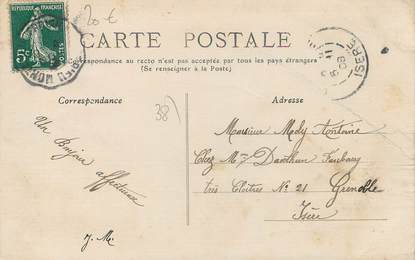 20 €
RÉPUBLIQUE FRANÇAISE
5c
POSTES
CARTE POSTALE
ISERE
08
La Correspondance au recto n'est pas acceptée par tous les pays étrangers
(Se renseigner à la Poste)
Correspondance
38)
Adresse
Un Bonjour
affectueux
J. M.
Monsieur Mody Antoine
Chez Mr Faubourg
très Cloîtres No 21 Grenoble
Isère